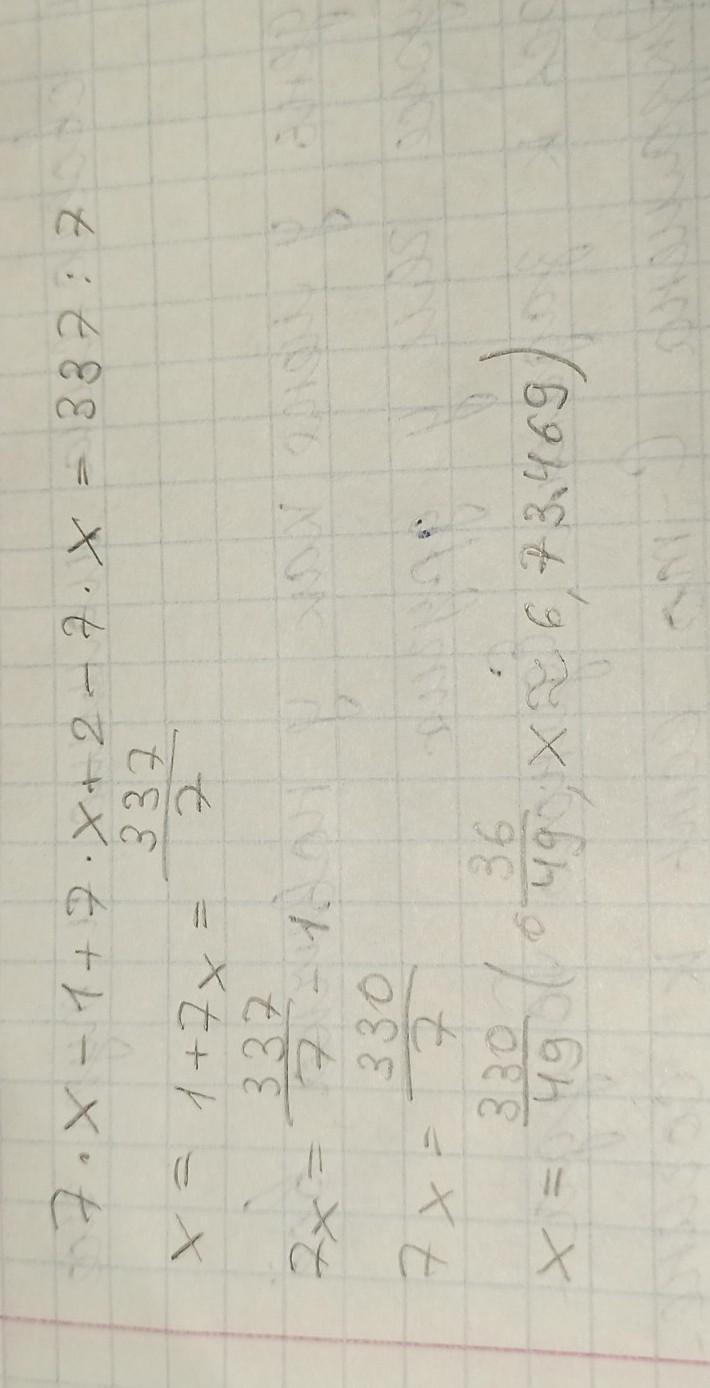 7·x-1+7·x+2-7·x=337:7
x=1+7x=337/7
7x=337/7-1.
7x=330/7
x=330/49 (6 36/49, x≈6,73469)